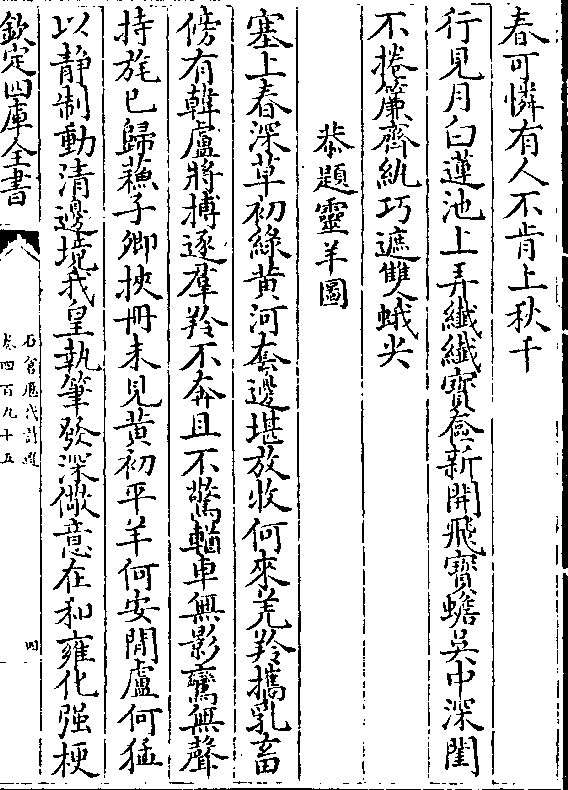 春可憐有人不肯上秋千
行見月白蓮池上弄纖纖寶奩新開飛寶蟾吳中深閨
不捲簾齊紈巧遮雙蛾尖
恭題靈羊圖
塞上春深草初綠黄河套邊堪放收何來羌羚攜乳畜
傍有韓盧將搏逐羣羚不奔且不驚輶車無影鸞無聲
持旄已歸蘇子卿挾冊未見黄初平羊何安閒盧何猛
以静制動清邊境我皇執筆發深儆意在和雍化强梗
欽定四庫全書
石倉歷代詩選
卷四百九十五
四